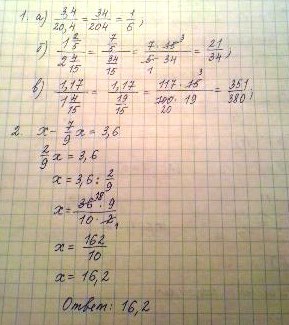 1. а) 3,4/20,4 = 34/204 = 1/6;
б) 1 2/5 / 2 4/15 = 7/5 / 34/15 = 7 · 15 3 / 5 · 34 1 = 21/34;
в) 1,17 / 1 4/15 = 1,17 / 19/15 = 117 · 15 3 / 100 · 19 20 = 351/380;
2. x - 7/9 x = 3,6
2/9 x = 3,6
x = 3,6 : 2/9
x = 36 18 · 9 / 10 · 2 1
x = 162/10
x = 16,2
Ответ: 16,2